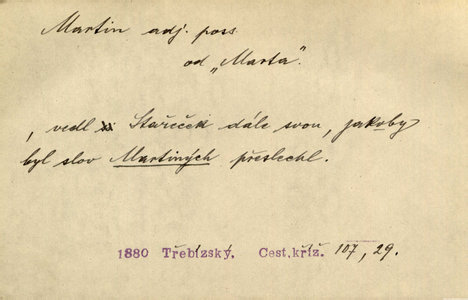 Martin adj. poss
od „Marta".
, vedl Stařeček dále svou, jakoby
byl slov Martiných přeslechl.
1880 Třebízský. Cest.kříž. 107, 29.